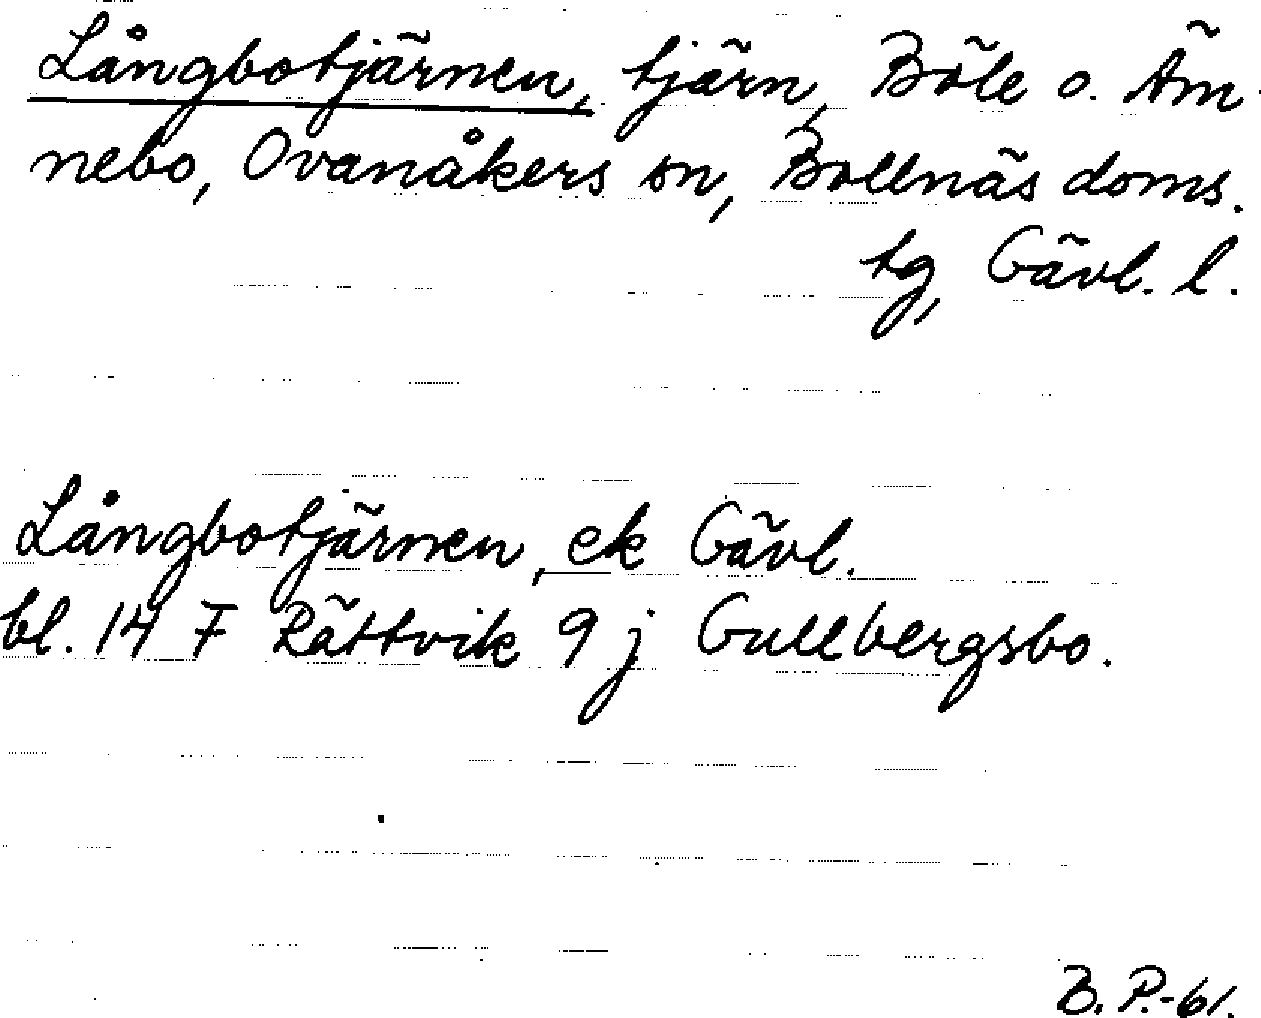 Långbotjärnen, tjärn, Böle o. Äm-
nebo, Ovanåkers sn, Bollnäs doms.
tg, Gävl. l.
Långbotjärnen, ek Gävl.
bl. 14 F Rättvik 9 j Gullbergsbo.
B. P.-61.